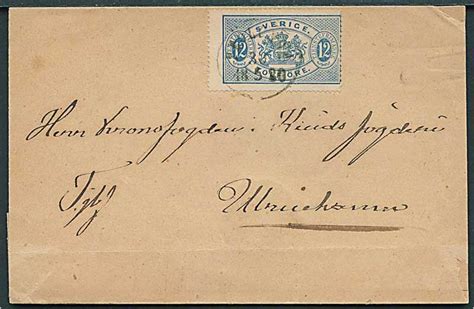 SVERIGE.
12 12
TOLF ÖRE
18 5 80
Herr Kronofogden i Kinds fögderi
Ulricehamn